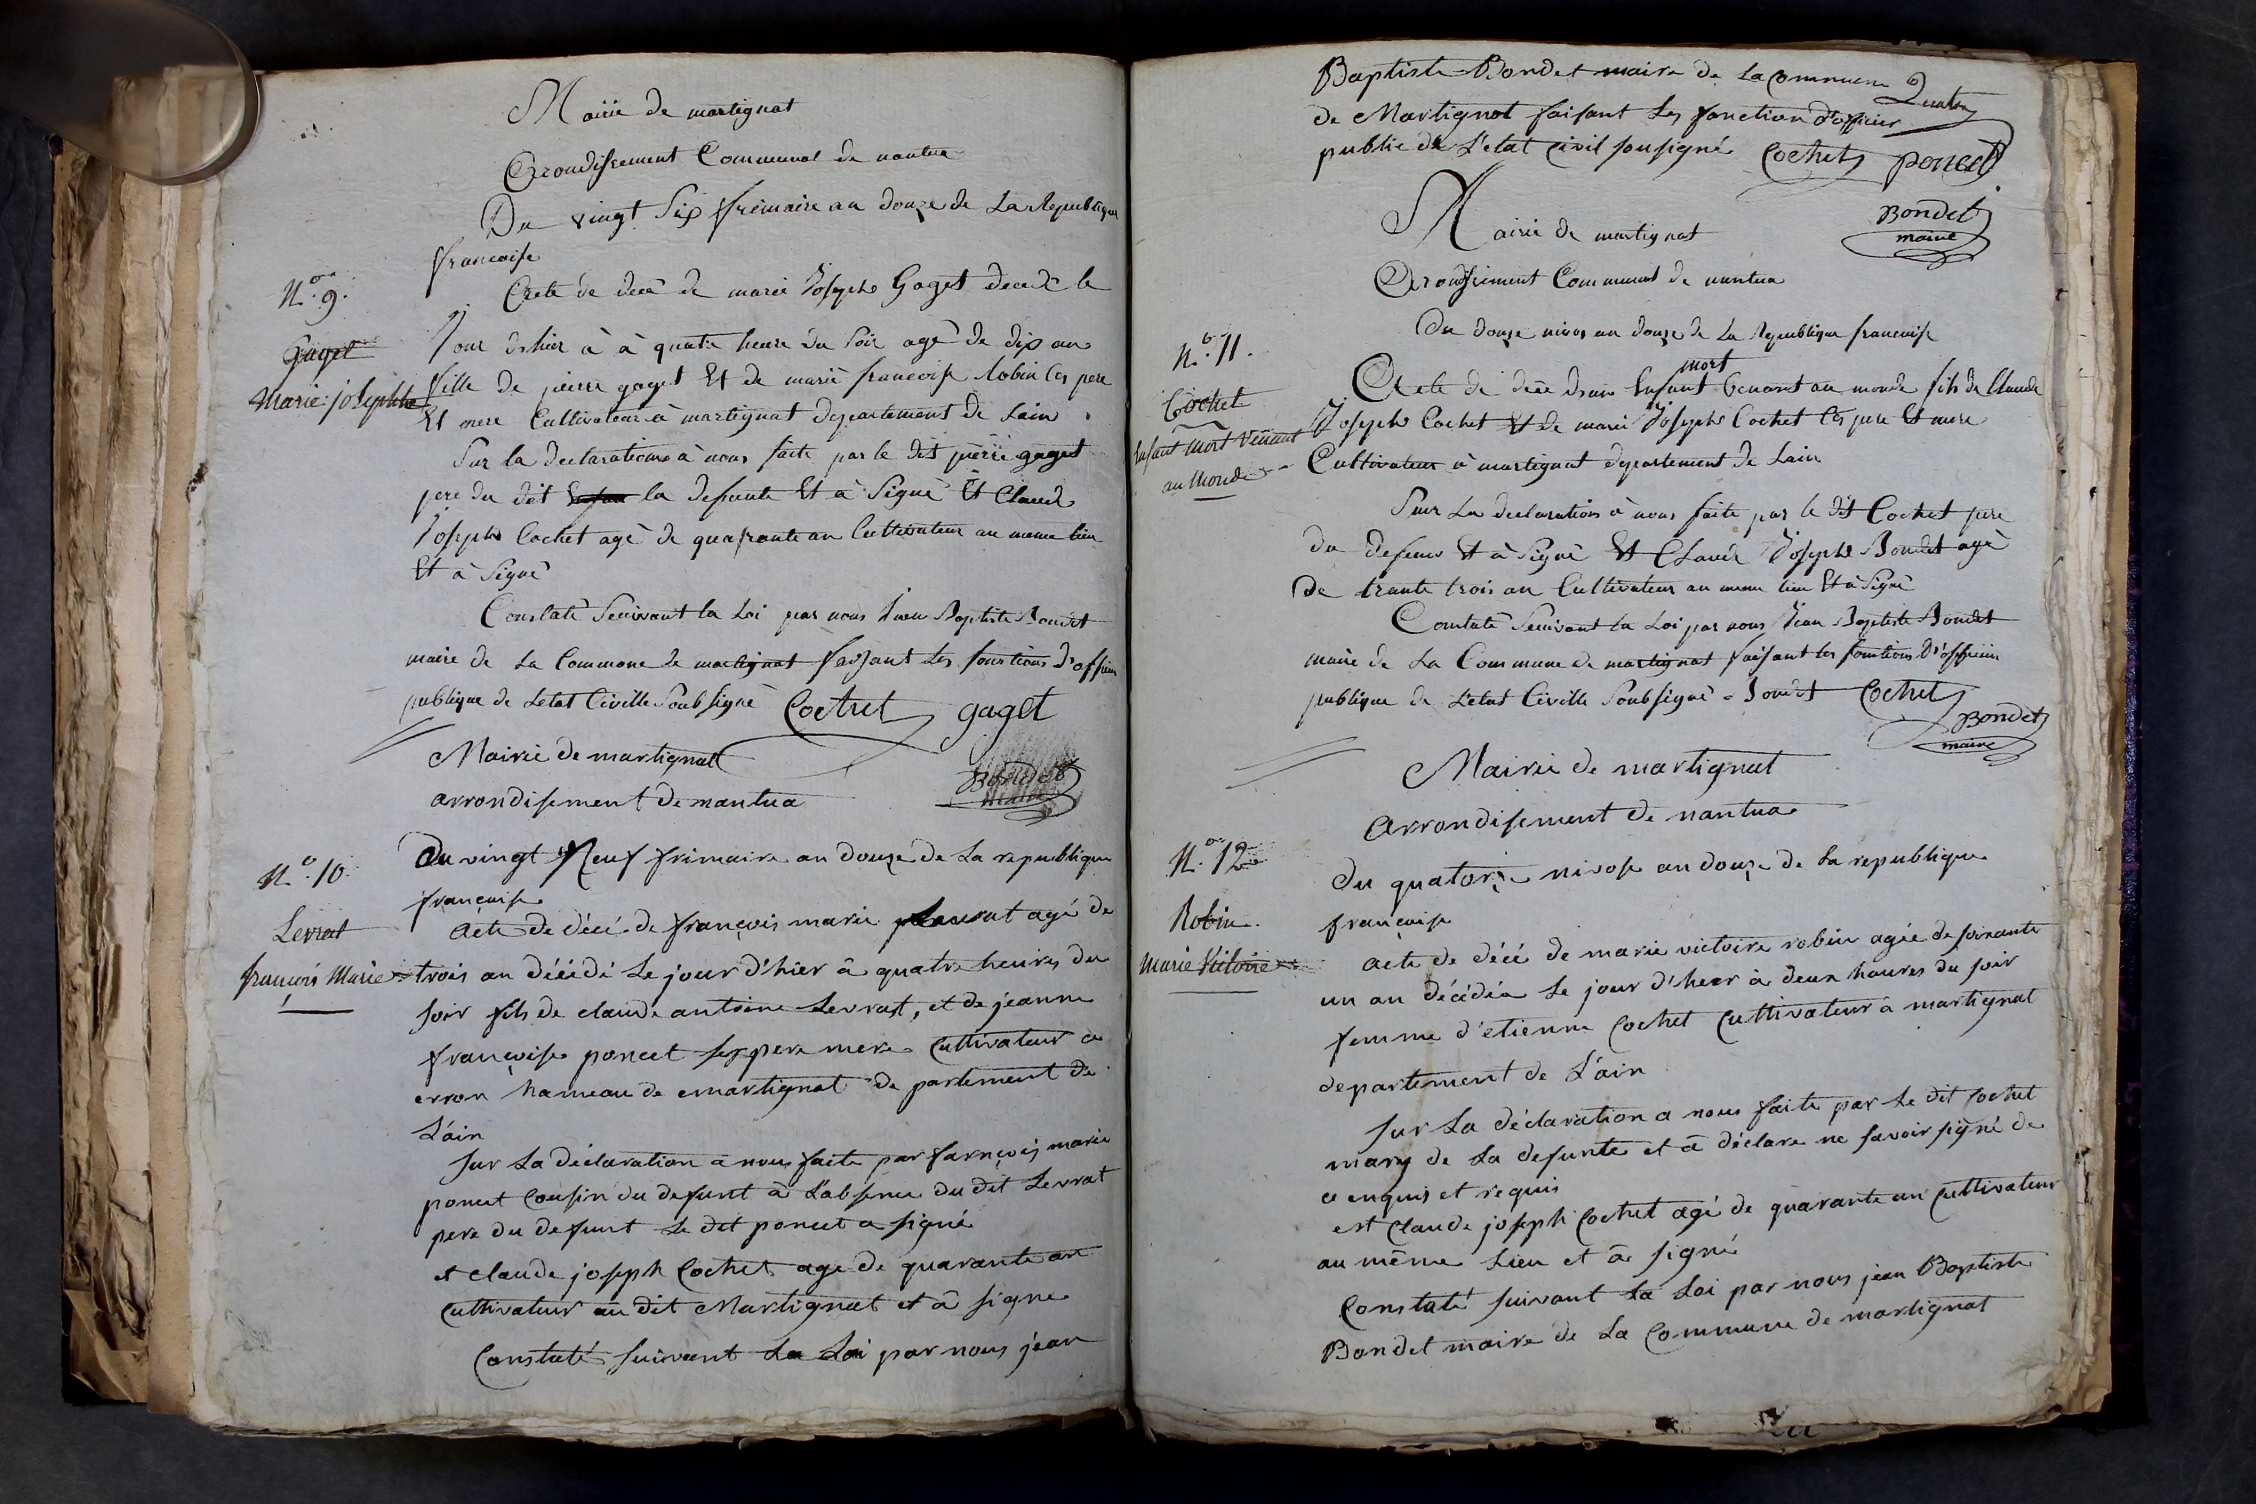 Mairie de martignat
Arrondissement Communal de nantua
Du vingt six frimaire an douze de La Republique
francaise
N.º 9.
Gaget
Marie josephte
Acte de decè de marie Joseph Gaget decedé le
Jour d'hier à à quatre heure du soir agé de dix an
fille de pierre gaget Et de marie francoise Robin ces pere
Et mere Cultivateur à martignat departement de Lain
Sur la declaration à nous faite par le dit pierre gaget
pere du dit la defunte Et à Signé Et Claude
Joseph Cochet agé de quarante an Cultivateur au meme lieu
Et à Signé
Constaté Seuivant la Loi par nous Jean Baptiste Bondet
maire de La Commone de martignat faisant les fonctions d'officier
publique de Letat Civille Soubsigné Cochet gaget
Bondet
maire
Mairie de martignat
arrondisement de nantua
N.º 10.
Levrat
françois Marie
Du vingt Neuf frimaire an douze de La republique
françaisse
Acte de décé de françois marie Levrat agé de
trois an décédé Le jour d'hier à quatre heures du
soir fils de claude antoine Levrat, et de jeanne
françoise poncet ses pere mere Cultivateur a
erron hameau de martignat de partement de
L'ain
Sur La déclaration a nous faite par farnçois marie
poncet Cousin du defunt à L'absence du dit Levrat
pere du defunt Le dit poncet a signé
et claude joseph Cochet age de quarante an
Cultivateur au dit Martignat et à signe
Constaté suivant La Loi par nous jean
Baptiste Bondet maire de La Commune
de Martignat faisant Les fonction d'officier
public de L'etat Civil sousigné Cochet poncet
Bondet
maire
Mairie de martignat
Arrondissement Communal de nantua
Du douze nivos an douze de La Republique francaise
N.º 11.
Cochet
enfant mort venant
au Monde
mort
Acte de décè d'un Enfant Venant au monde fils de Claude
Joseph Cochet Et de marie Joseph Cochet Ces pere Et mere
Cultivateur à martignat departement de Lain
Sur La declaration à nous faite par le dit Cochet pere
du defunt Et à Signé Et Claude Joseph Bondet agé
de trante trois an Cultivateur au meme lieu Et à Signé
Constaté Seuivant la Loi par nous Jean Baptiste Bondet
maire de La Commune de martignat faisant les fonctions D'officier
publique de L'etat Civille Soubsigné Bondet Cochet
Bondet
maire
Mairie de martignat
Arrondisement de nantua
N.º 12
Robin
Marie Victoire
Du quatorze nivose an douze de La republique
françaisse
Acte de décé de marie victoire robin agée de soixante
un an décédéa Le jour d'hier à deux heures du soir
femme d'etienne Cochet Cultivateur à martignat
departement de L'ain
Sur La déclaration a nous faite par Le dit Cochet
mary de La defunte et à déclare ne savoir signé de
ce enquis et requis
est Claude joseph Cochet agé de quarante an Cultivateur
au même Lieu et à signé
Constaté suivant La Loi par nous jean Baptiste
Bondet maire de La Commune de martignat